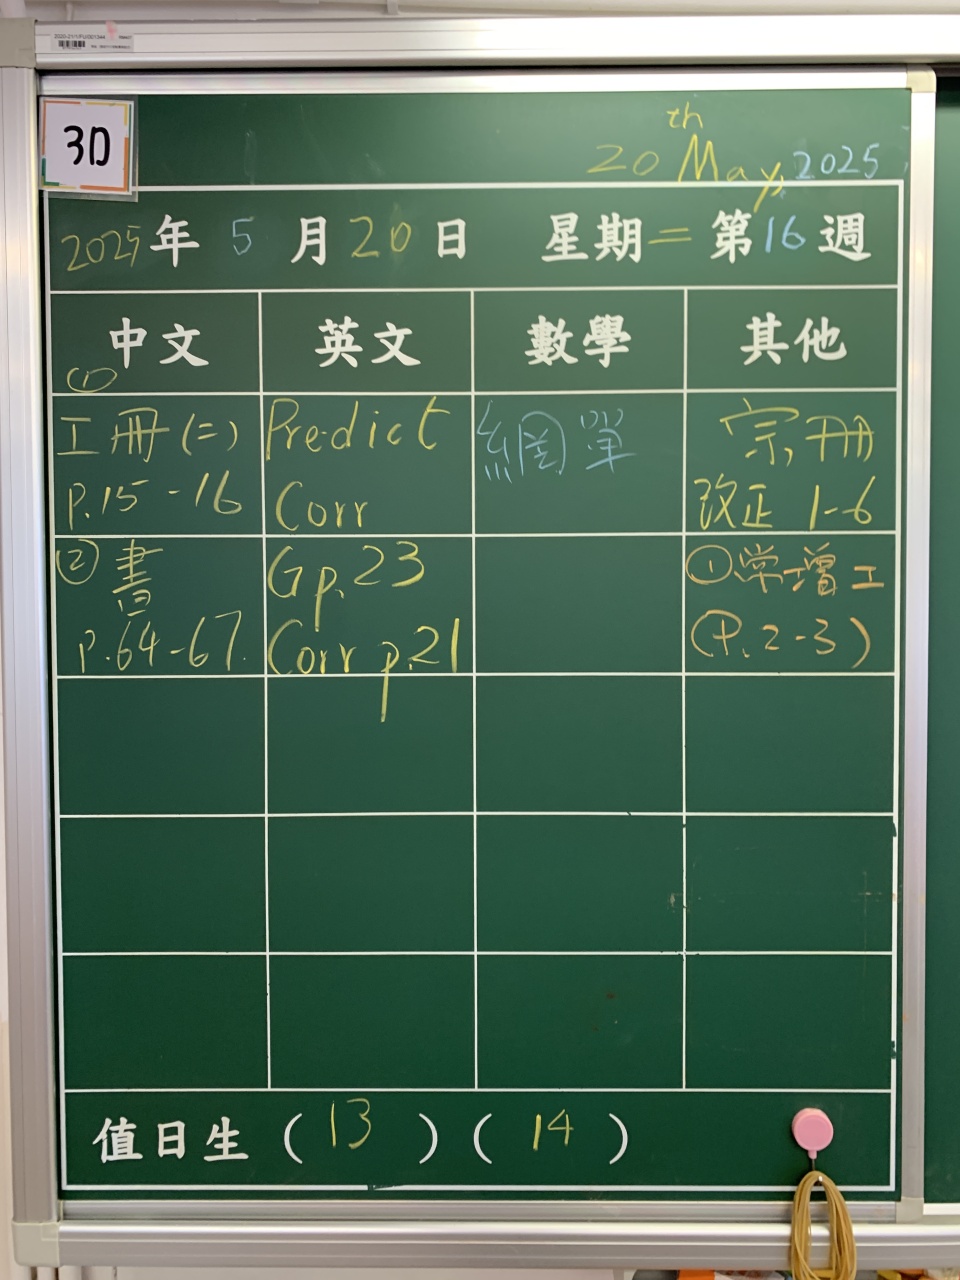 3D
20th May, 2025
2025年 5 月 20 日 星期二 第 16 週
中文 英文 數學 其他
① 工冊(二)
P.15-16
Predict
Corr
網單
宗冊
改正 1-6
② 書
P.64-67.
Gp.23
Corr p.21
① 常增工
(P.2-3)
值日生 ( 13 ) ( 14 )